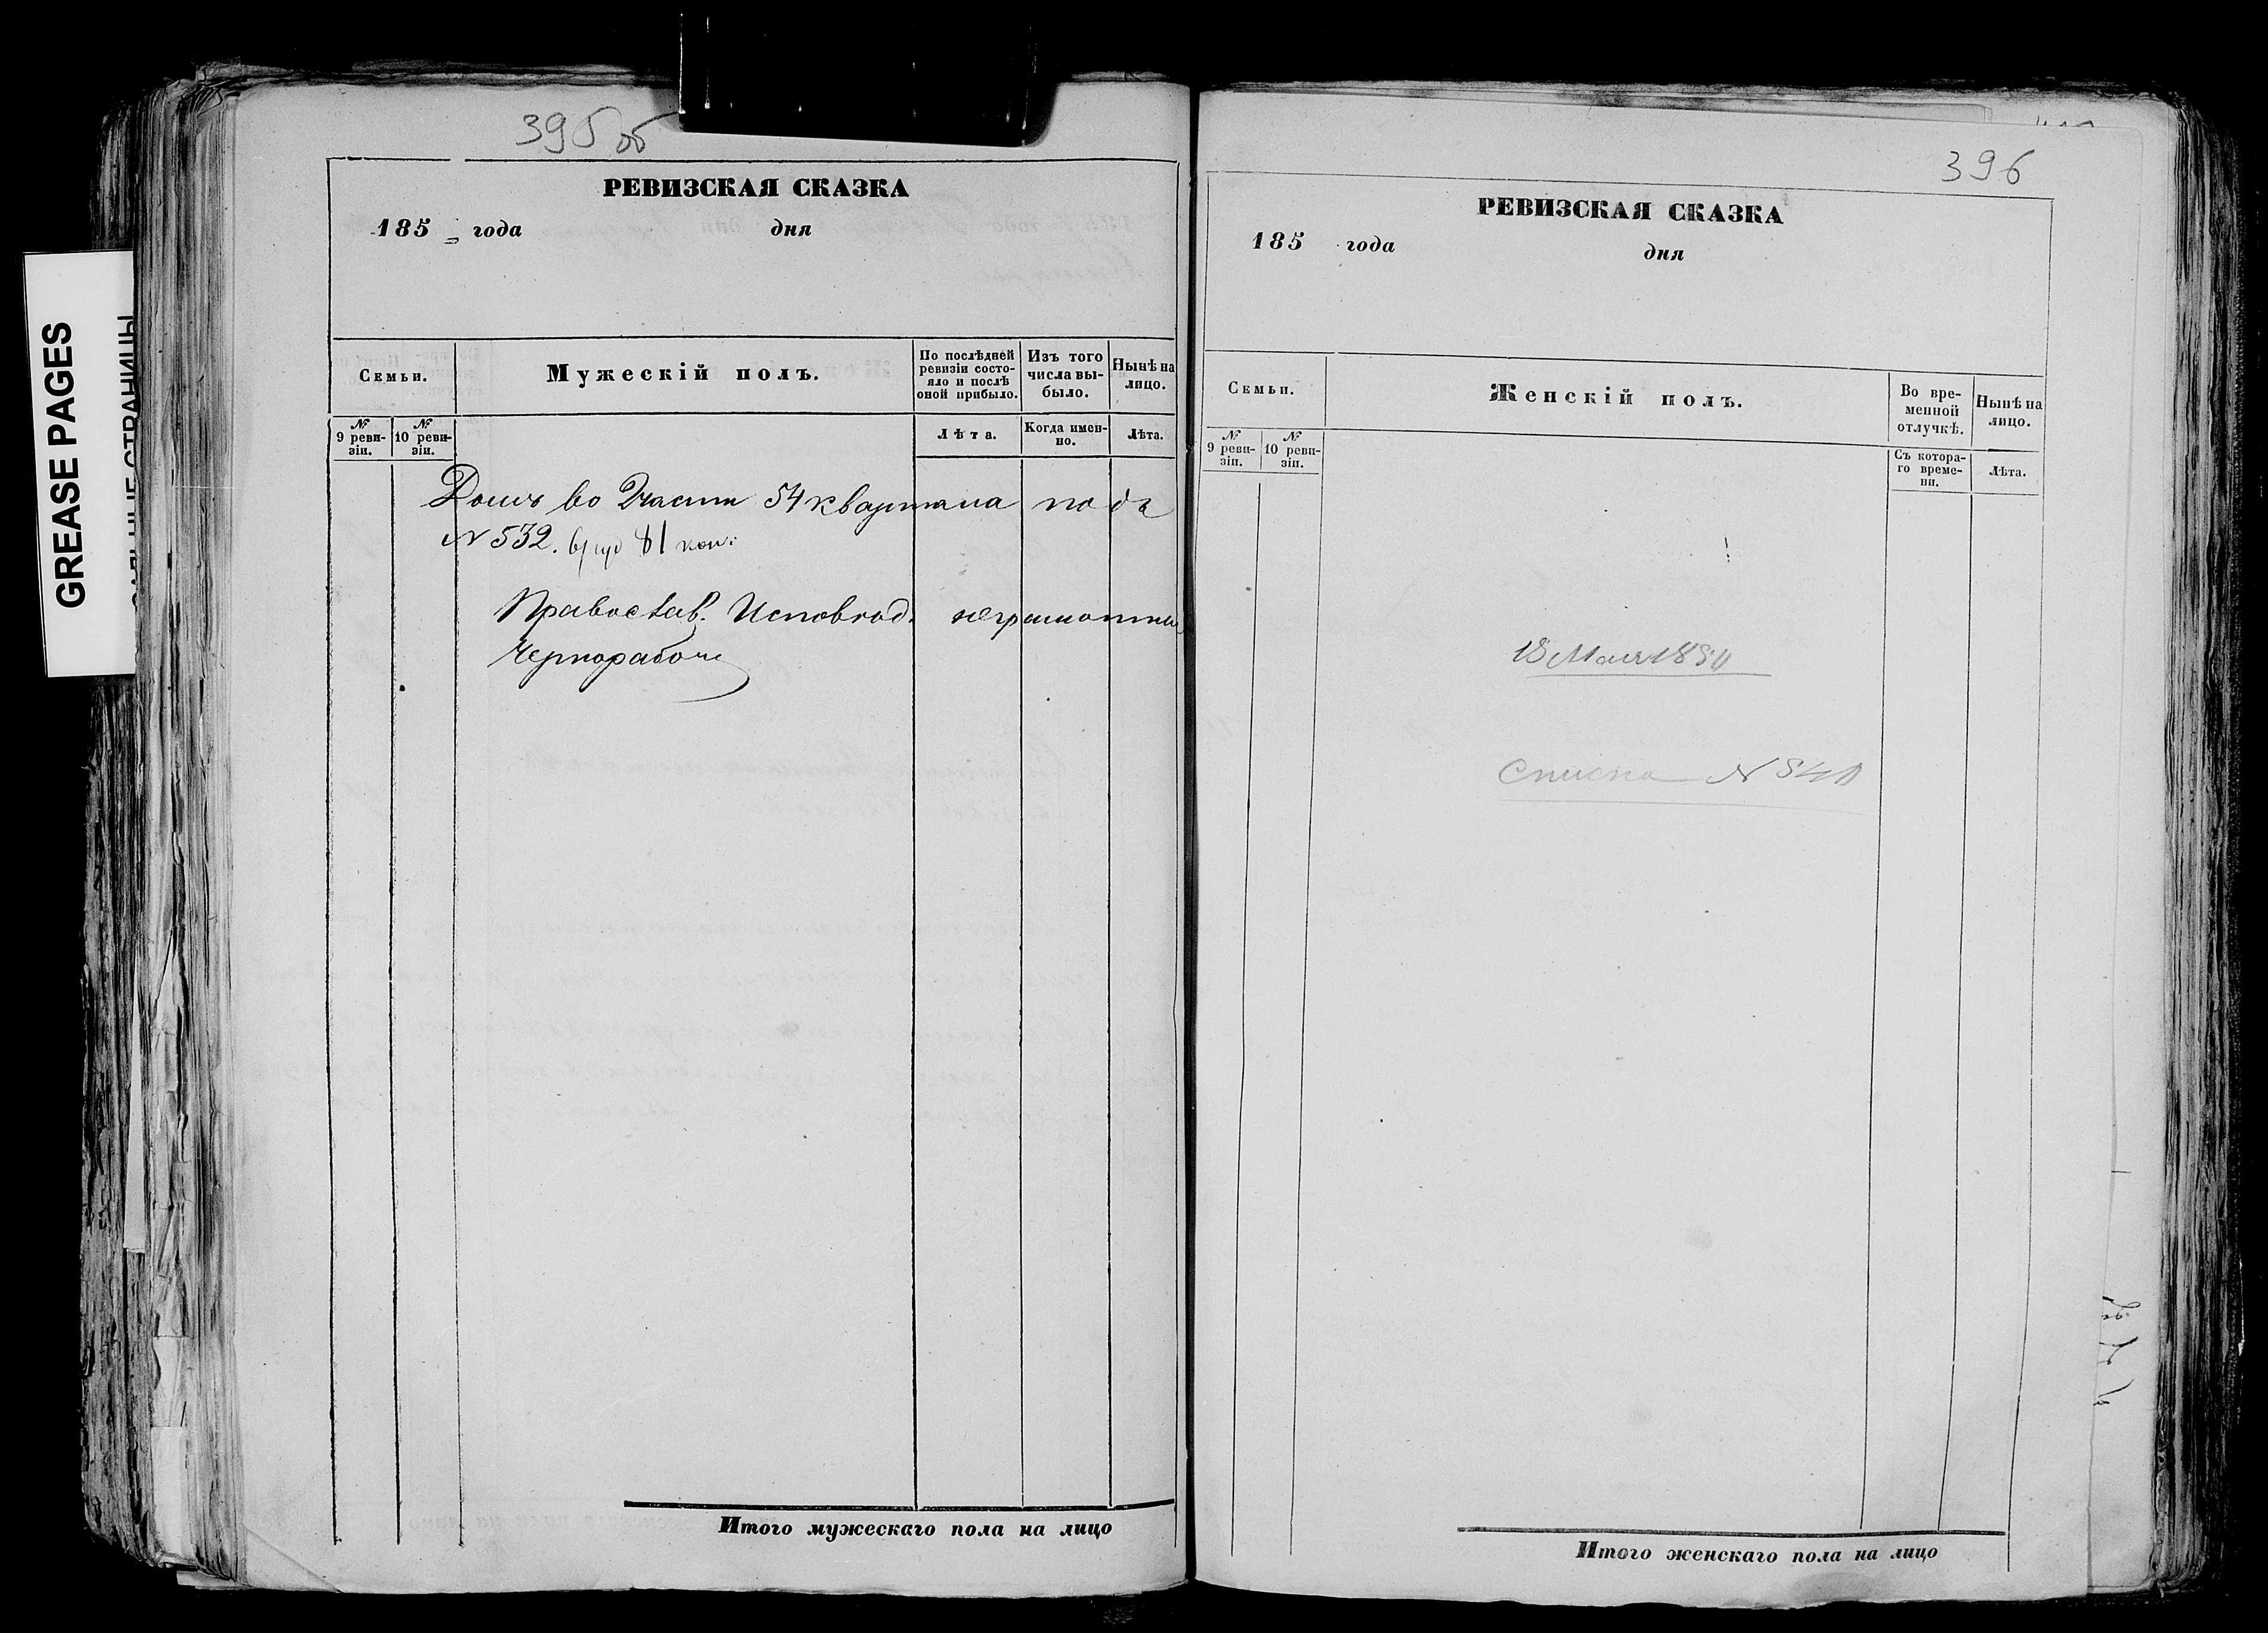 GREASE PAGES
395 об
РЕВИЗСКАЯ СКАЗКА
185 года дня
Семьи.
Мужескій полъ.
По послѣдней ревизіи состояло и послѣ оной прибыло.
Изъ того числа выбыло.
Нынѣ на лицо.
№ 9 ревизіи.
№ 10 ревизіи.
Лѣта.
Когда именно.
Лѣта.
Домъ во 2 части 54 квартала подъ
№ 532. 81 коп:
Православ. Исповѣд. неграмотны
Чернорабочи
Итого мужескаго пола на лицо
396
РЕВИЗСКАЯ СКАЗКА
185 года дня
Семьи.
Женскій полъ.
Во временной отлучкѣ.
Нынѣ на лицо.
№ 9 ревизіи.
№ 10 ревизіи.
Съ котораго времени.
Лѣта.
18 Мая
Списка №
Итого женскаго пола на лицо